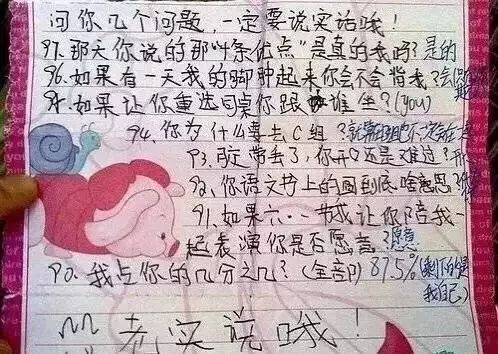 问你几个问题，一定要说实话哦！
97.那天你说的那"4条优点"是真的我吗？是的
96.如果有一天我的脚肿起来你会不会背我？会
95.如果让你重选同桌你跟谁坐？(you)
94.你为什么要去C组？
93.我定带丢了，你开心还是难过？
92.你语文书上的画到底啥意思？
91.如果六·一节我让你陪我一
起表演你是否愿意？愿意
90.我占你的几分之几？(全部) 87.5%(剩下的是
我自己)
老实说哦！